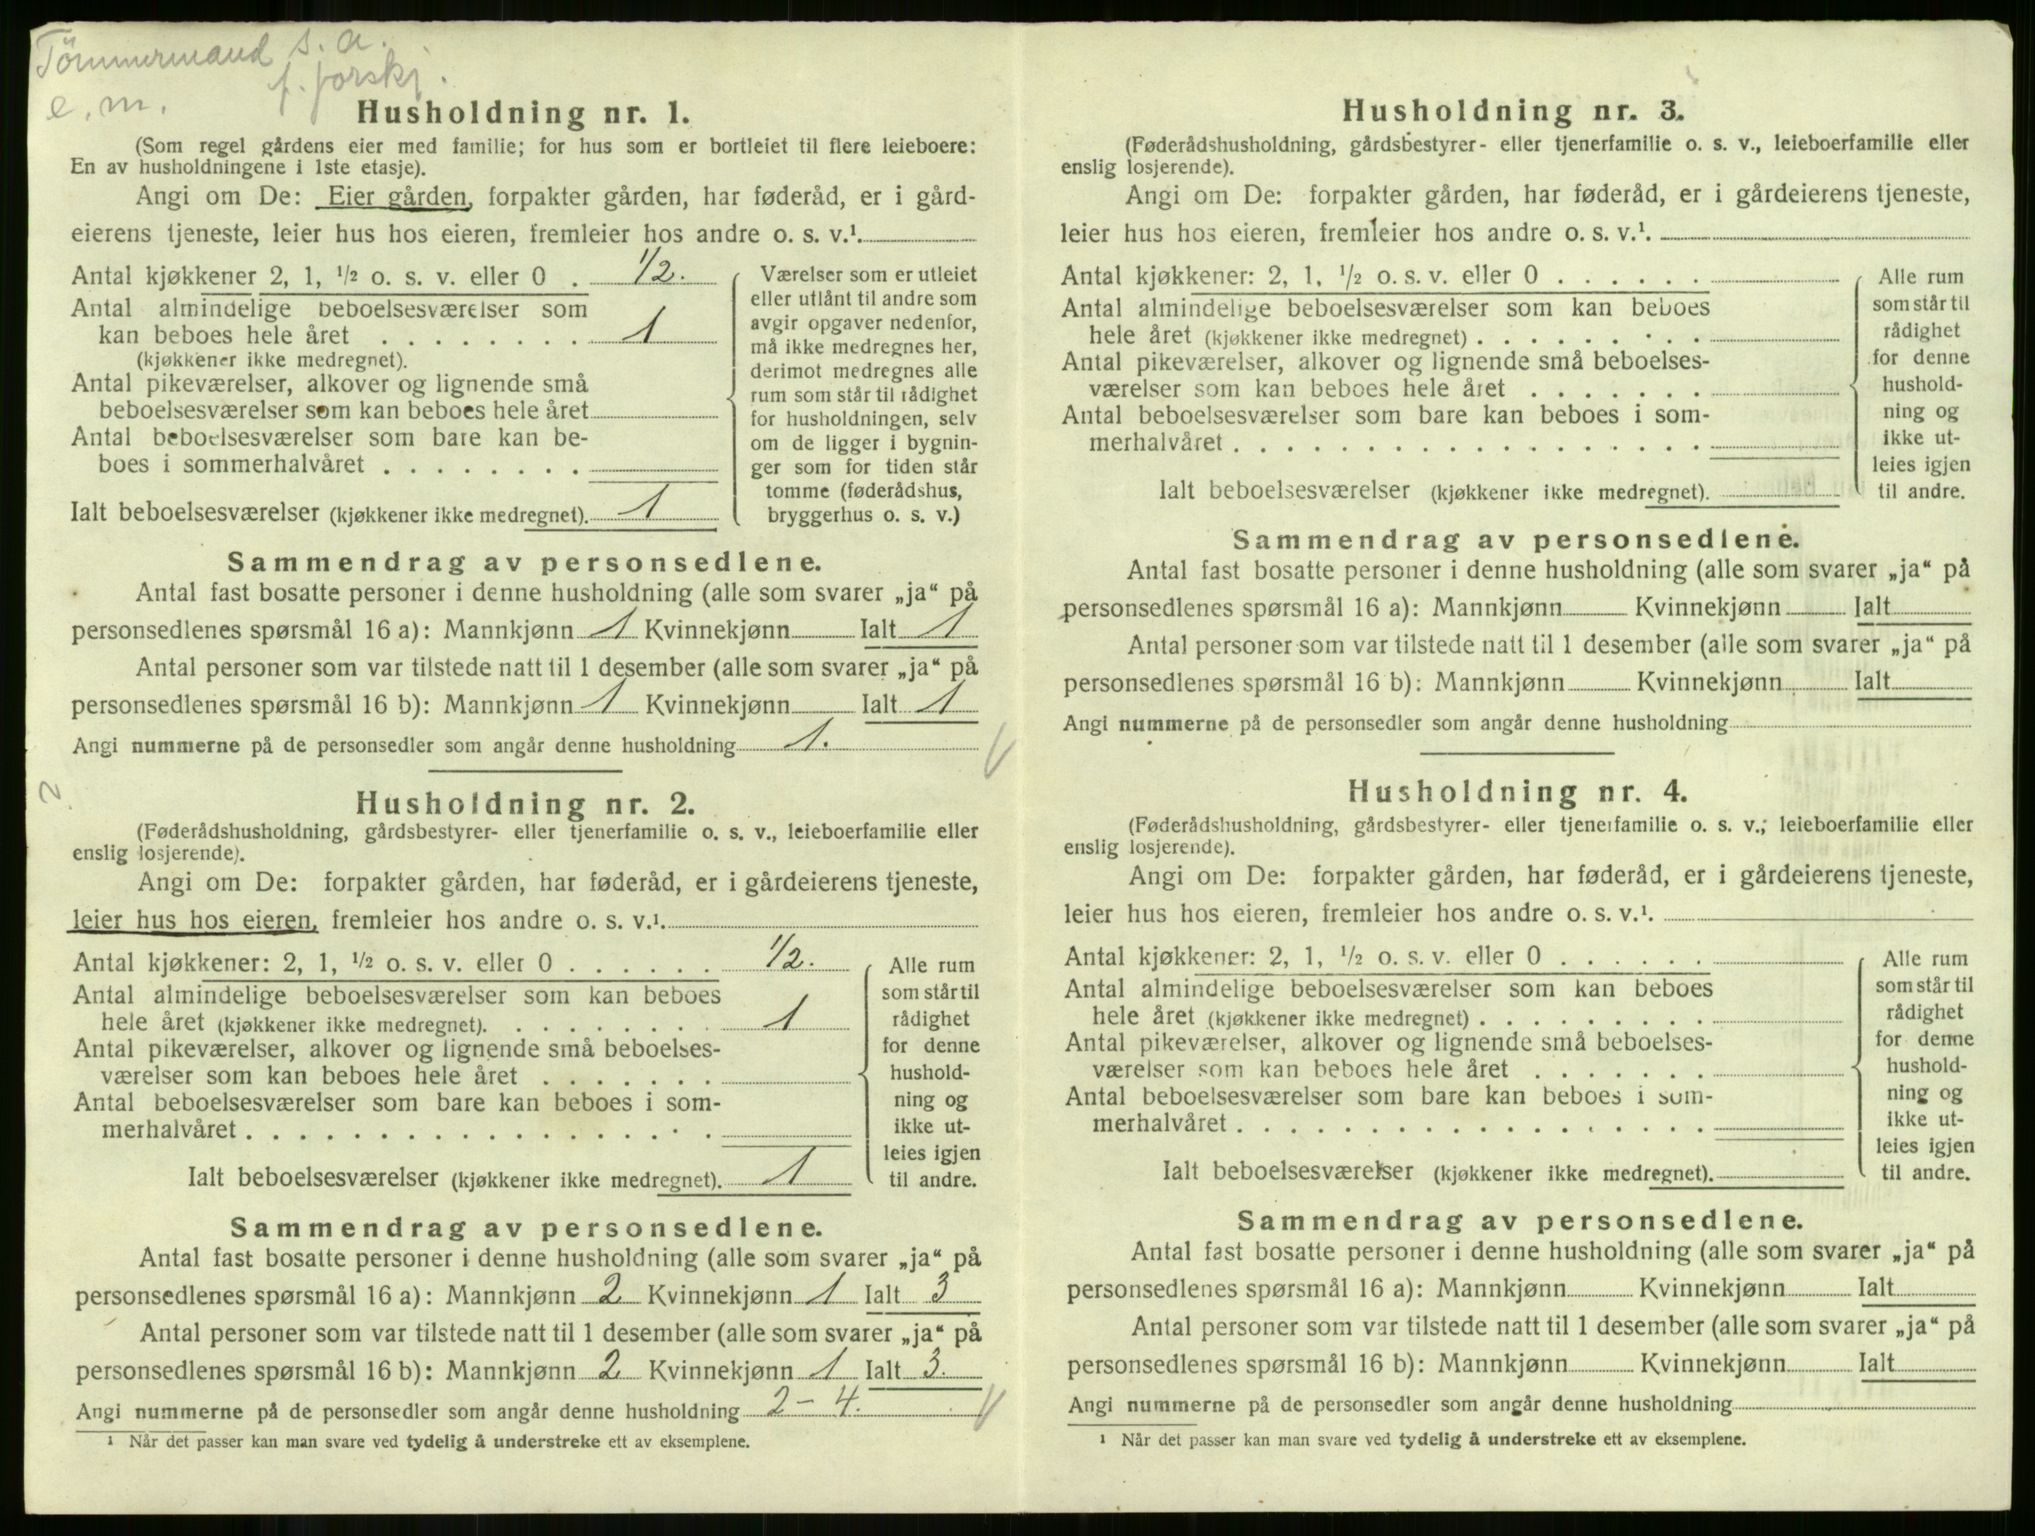 Tömmermand s. a.
e. m. f. jorskj.
Husholdning nr. 1.
(Som regel gårdens eier med familie; for hus som er bortleiet til flere leieboere:
En av husholdningene i 1ste etasje).
Angi om De: Eier gården, forpakter gården, har føderåd, er i gård-
eierens tjeneste, leier hus hos eieren, fremleier hos andre o. s. v.¹
Antal kjøkkener 2, 1, ½ o. s. v. eller 0 . 1/2.
Antal almindelige beboelsesværelser som
kan beboes hele året . . . . . . . . 1
(kjøkkener ikke medregnet).
Antal pikeværelser, alkover og lignende små
beboelsesværelser som kan beboes hele året
Antal beboelsesværelser som bare kan be-
boes i sommerhalvåret . . . . . . . .
Ialt beboelsesværelser (kjøkkener ikke medregnet). 1
Værelser som er utleiet
eller utlånt til andre som
avgir opgaver nedenfor,
må ikke medregnes her,
derimot medregnes alle
rum som står til rådighet
for husholdningen, selv
om de ligger i bygnin-
ger som for tiden står
tomme (føderådshus,
bryggerhus o. s. v.)
Sammendrag av personsedlene.
Antal fast bosatte personer i denne husholdning (alle som svarer „ja“ på
personsedlenes spørsmål 16 a): Mannkjønn 1 Kvinnekjønn Ialt 1
Antal personer som var tilstede natt til 1 desember (alle som svarer „ja“ på
personsedlenes spørsmål 16 b): Mannkjønn 1 Kvinnekjønn Ialt 1
Angi nummerne på de personsedler som angår denne husholdning 1.
2
Husholdning nr. 2.
(Føderådshusholdning, gårdsbestyrer- eller tjenerfamilie o. s. v., leieboerfamilie eller
enslig losjerende).
Angi om De: forpakter gården, har føderåd, er i gårdeierens tjeneste,
leier hus hos eieren, fremleier hos andre o. s. v.¹
Antal kjøkkener: 2, 1, ½ o. s. v. eller 0 . . . . . . 1/2.
Antal almindelige beboelsesværelser som kan beboes
hele året (kjøkkener ikke medregnet). . . . . . . . . 1
Antal pikeværelser, alkover og lignende små beboelses-
værelser som kan beboes hele året . . . . . . .
Antal beboelsesværelser som bare kan beboes i som-
merhalvåret . . . . . . . . . . . . . . . . .
Ialt beboelsesværelser (kjøkkener ikke medregnet). 1
Alle rum
som står til
rådighet
for denne
hushold-
ning og
ikke ut-
leies igjen
til andre.
Sammendrag av personsedlene.
Antal fast bosatte personer i denne husholdning (alle som svarer „ja“ på
personsedlenes spørsmål 16 a): Mannkjønn 2 Kvinnekjønn 1 Ialt 3
Antal personer som var tilstede natt til 1 desember (alle som svarer „ja“ på
personsedlenes spørsmål 16 b): Mannkjønn 2 Kvinnekjønn 1 Ialt 3.
Angi nummerne på de personsedler som angår denne husholdning 2 – 4.
¹ Når det passer kan man svare ved tydelig å understreke ett av eksemplene.
Husholdning nr. 3.
(Føderådshusholdning, gårdsbestyrer- eller tjenerfamilie o. s. v., leieboerfamilie eller
enslig losjerende).
Angi om De: forpakter gården, har føderåd, er i gårdeierens tjeneste,
leier hus hos eieren, fremleier hos andre o. s. v.¹.
Antal kjøkkener: 2, 1, ½ o. s. v. eller 0 . . . . . .
Antal almindelige beboelsesværelser som kan beboes
hele året (kjøkkener ikke medregnet) . . . . . . . . .
Antal pikeværelser, alkover og lignende små beboelses-
værelser som kan beboes hele året . . . . . . .
Antal beboelsesværelser som bare kan beboes i som-
merhalvåret . . . . . . . . . . . . . . . . .
Ialt beboelsesværelser (kjøkkener ikke medregnet).
Alle rum
som står til
rådighet
for denne
hushold-
ning og
ikke ut-
leies igjen
til andre.
Sammendrag av personsedlene.
Antal fast bosatte personer i denne husholdning (alle som svarer „ja“ på
personsedlenes spørsmål 16 a): Mannkjønn Kvinnekjønn Ialt
Antal personer som var tilstede natt til 1 desember (alle som svarer „ja“ på
personsedlenes spørsmål 16 b): Mannkjønn Kvinnekjønn Ialt
Angi nummerne på de personsedler som angår denne husholdning
Husholdning nr. 4.
(Føderådshusholdning, gårdsbestyrer- eller tjenerfamilie o. s. v., leieboerfamilie eller
enslig losjerende).
Angi om De: forpakter gården, har føderåd, er i gårdeierens tjeneste,
leier hus hos eieren, fremleier hos andre o. s. v.¹.
Antal kjøkkener: 2, 1, ½ o. s. v. eller 0 . . . . . .
Antal almindelige beboelsesværelser som kan beboes
hele året (kjøkkener ikke medregnet) . . . . . . . . .
Antal pikeværelser, alkover og lignende små beboelses-
værelser som kan beboes hele året . . . . . . .
Antal beboelsesværelser som bare kan beboes i som-
merhalvåret . . . . . . . . . . . . . . . . .
Ialt beboelsesværelser (kjøkkener ikke medregnet).
Alle rum
som står til
rådighet
for denne
hushold-
ning og
ikke ut-
leies igjen
til andre.
Sammendrag av personsedlene.
Antal fast bosatte personer i denne husholdning (alle som svarer „ja“ på
personsedlenes spørsmål 16 a): Mannkjønn Kvinnekjønn Ialt
Antal personer som var tilstede natt til 1 desember (alle som svarer „ja“ på
personsedlenes spørsmål 16 b): Mannkjønn Kvinnekjønn Ialt
Angi nummerne på de personsedler som angår denne husholdning
¹ Når det passer kan man svare ved tydelig å understreke ett av eksemplene.